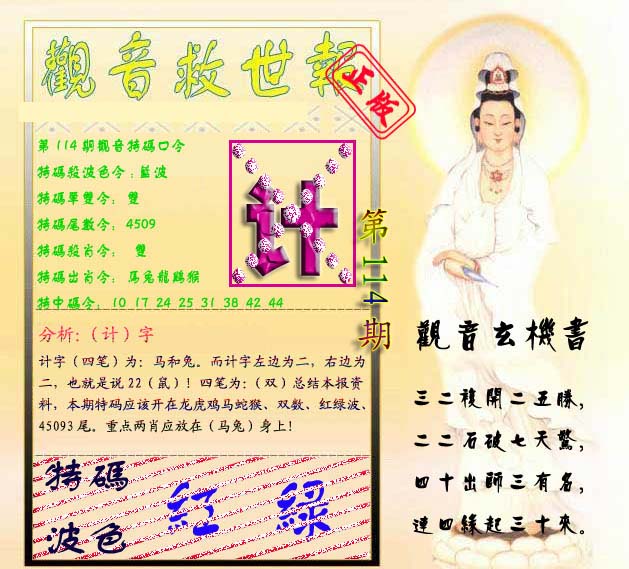 觀音救世報
正版
第114期觀音特碼口令
特碼殺波色令：藍波
特碼單雙令： 雙
特碼尾數令： 4509
特碼殺肖令： 雙
特碼出肖令： 馬兔龍鷄猴
特中碼令： 10 17 24 25 31 38 42 44
计
第114期
分析:（计）字
计字（四笔）为：马和兔。而计字左边为二，右边为
二，也就是说22（鼠）！四笔为:（双）总结本报资
料，本期特码应该开在龙虎鸡马蛇猴、双数、红绿波、
45093尾。重点两肖应放在（马兔）身上！
特碼
波色
紅 綠
觀音玄機書
三二複開二五勝，
二二石破七天驚，
四十出師三有名，
連四緣起三十來。